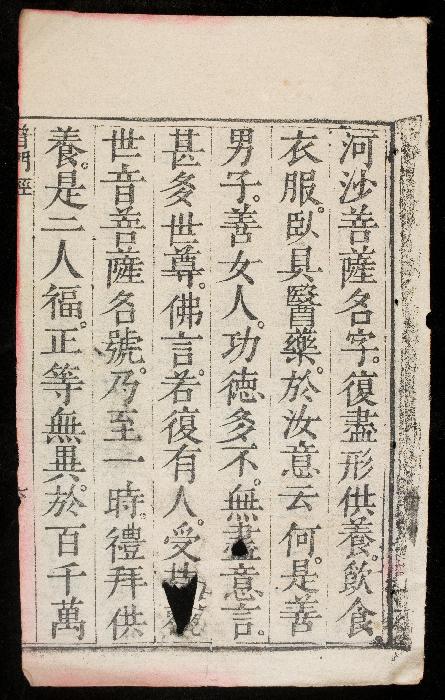 河沙菩薩名字。復盡形供養。飲食
衣服。臥具醫藥。於汝意云何。是善
男子。善女人。功德多不。無盡意言。
甚多世尊。佛言。若復有人。受
世音菩薩名號。乃至一時。禮拜供
養。是二人福。正等無異。於百千萬
普門經